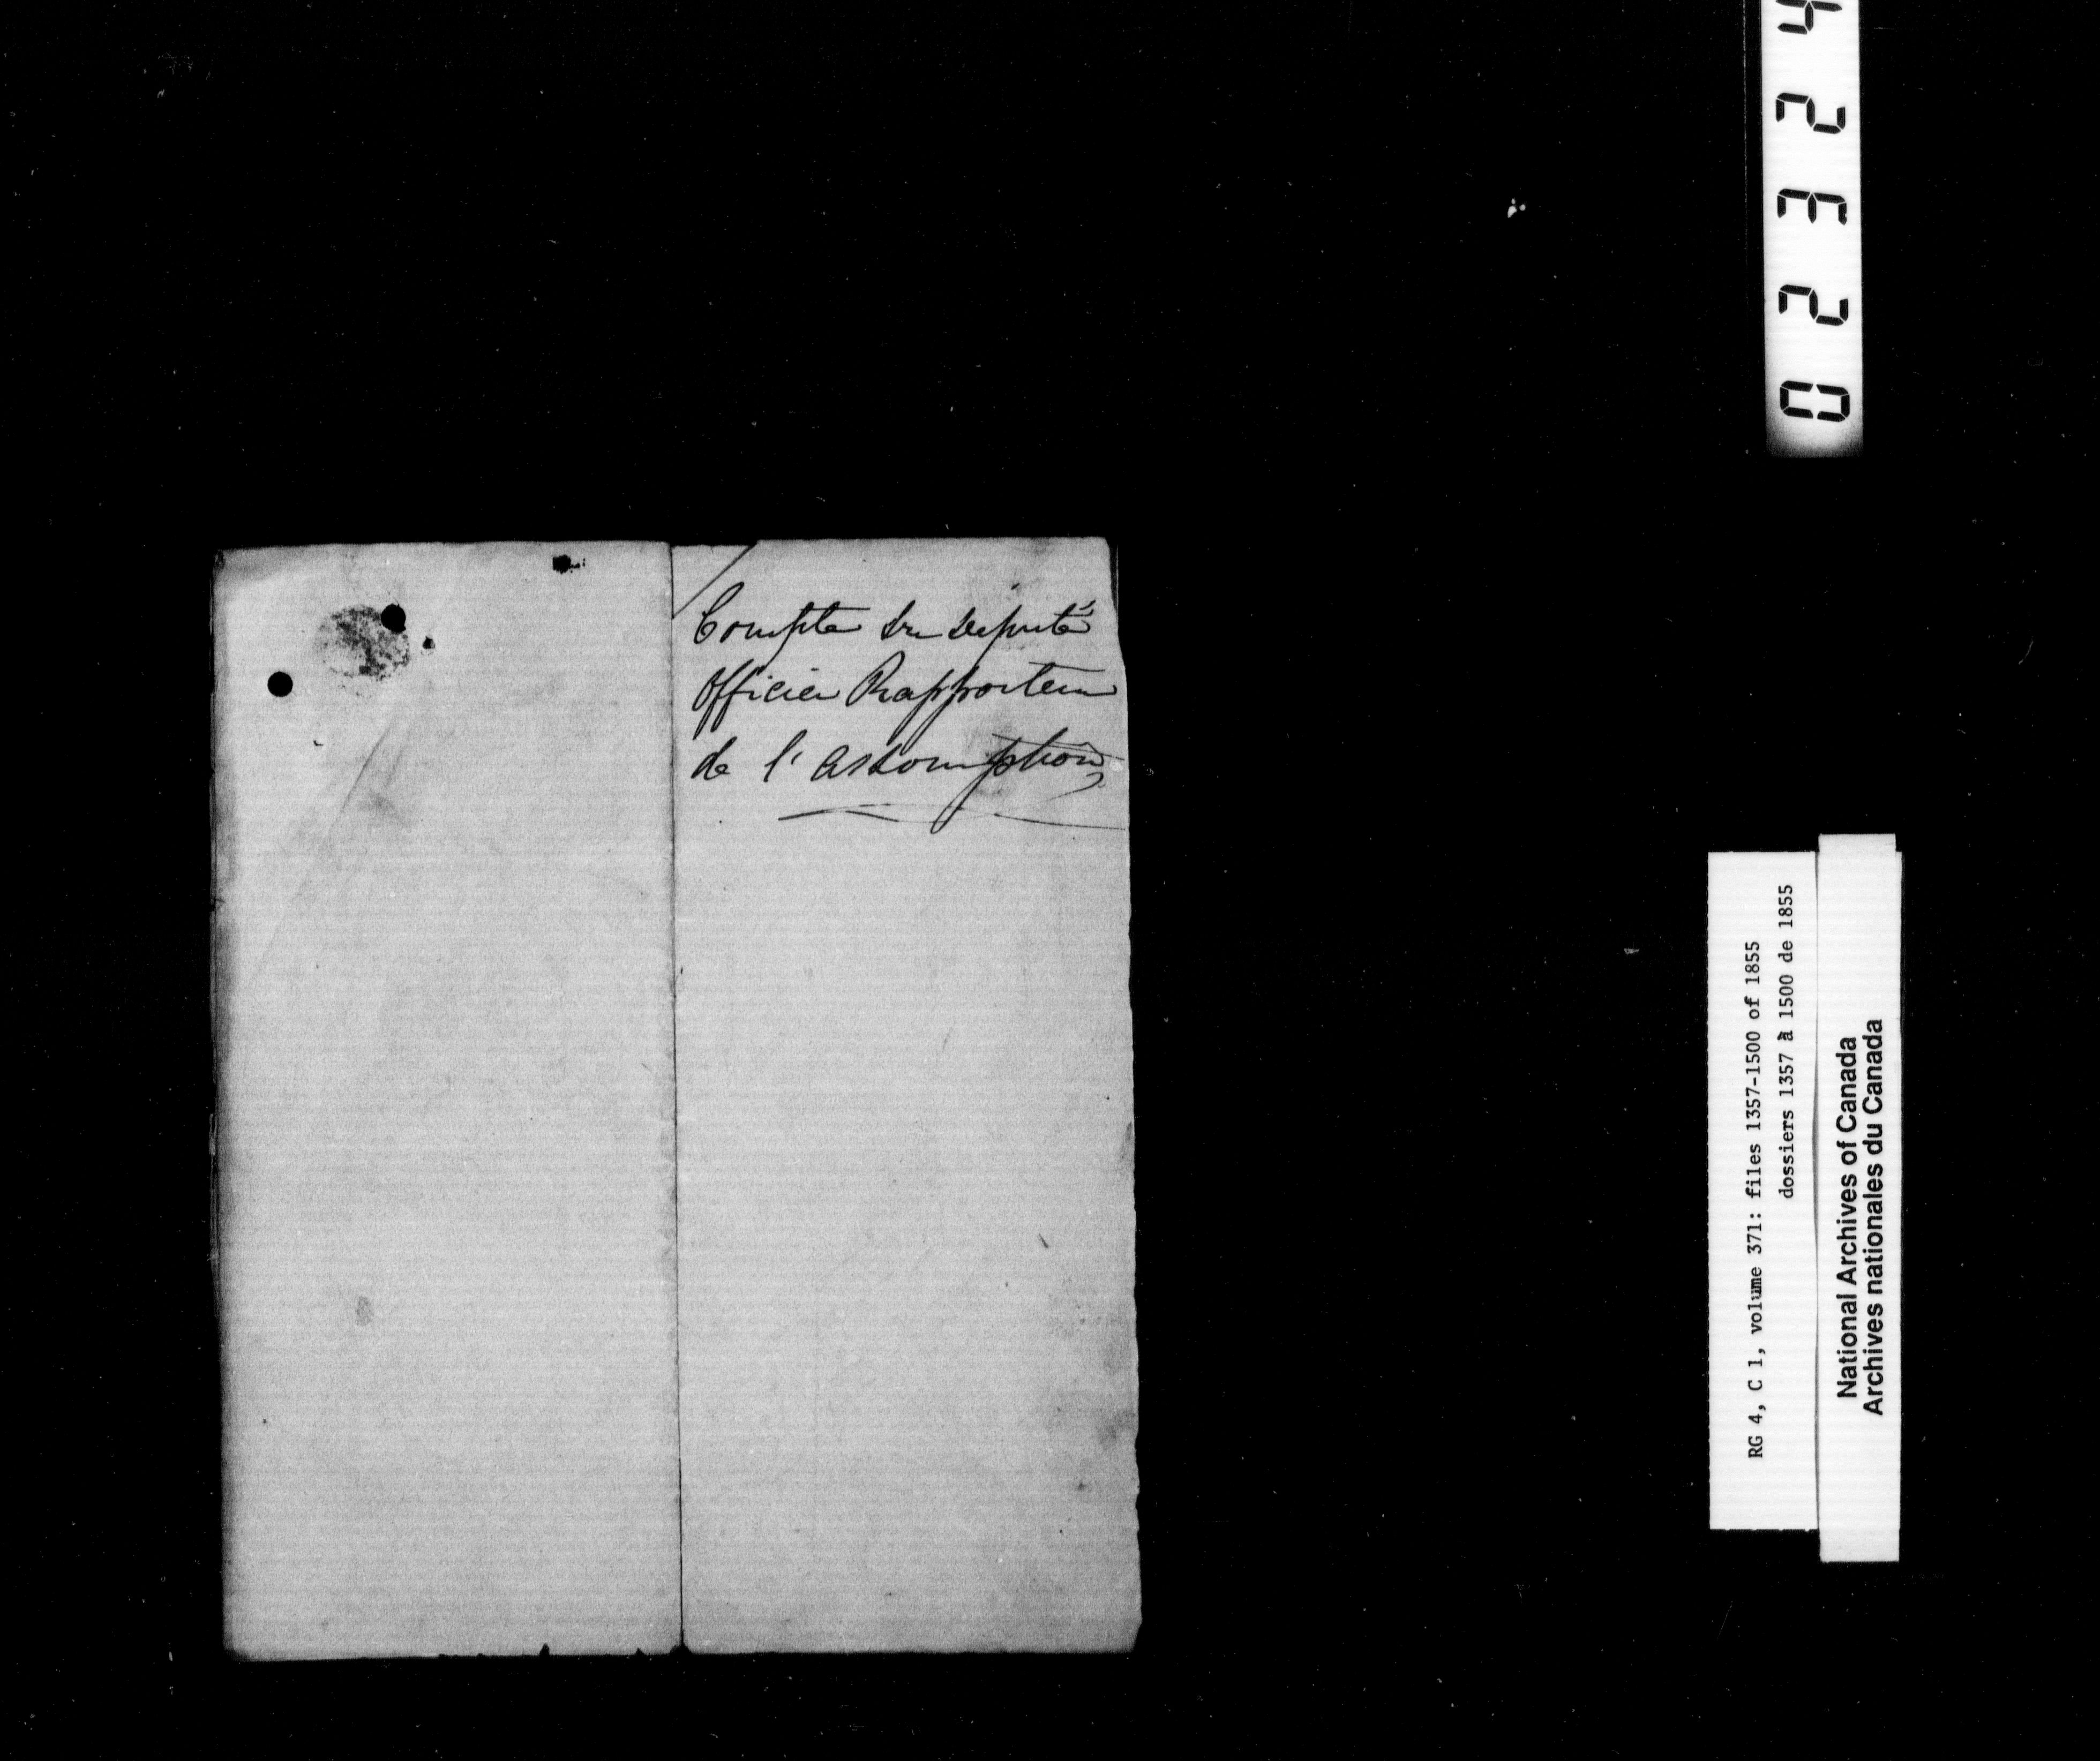 Compte du député
officier Rapporteur
de l'assomption
0 2 3 2 4
RG 4, C 1, volume 371: files 1357-1500 of 1855
dossiers 1357 à 1500 de 1855
National Archives of Canada
Archives nationales du Canada